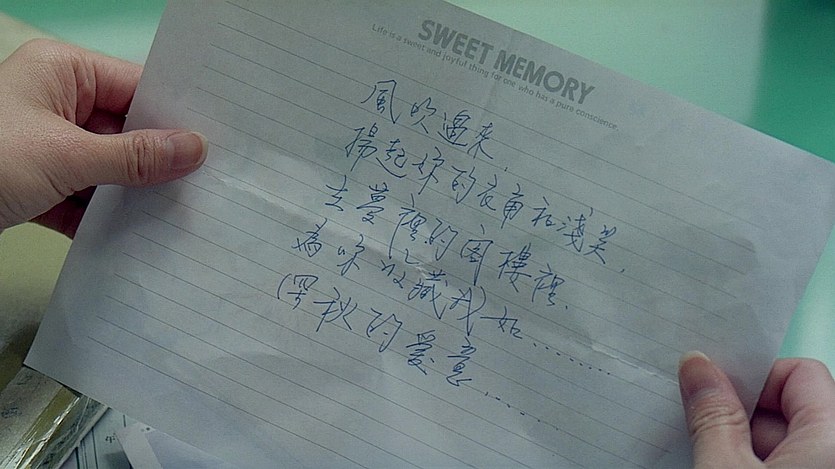 SWEET MEMORY
Life is a sweet and joyful thing for one who has a pure conscience.
風吹過來,
揚起妳的衣角和淺笑,
去夢裡的閣樓裡,
為妳收藏我如………
(深秋的愛意………